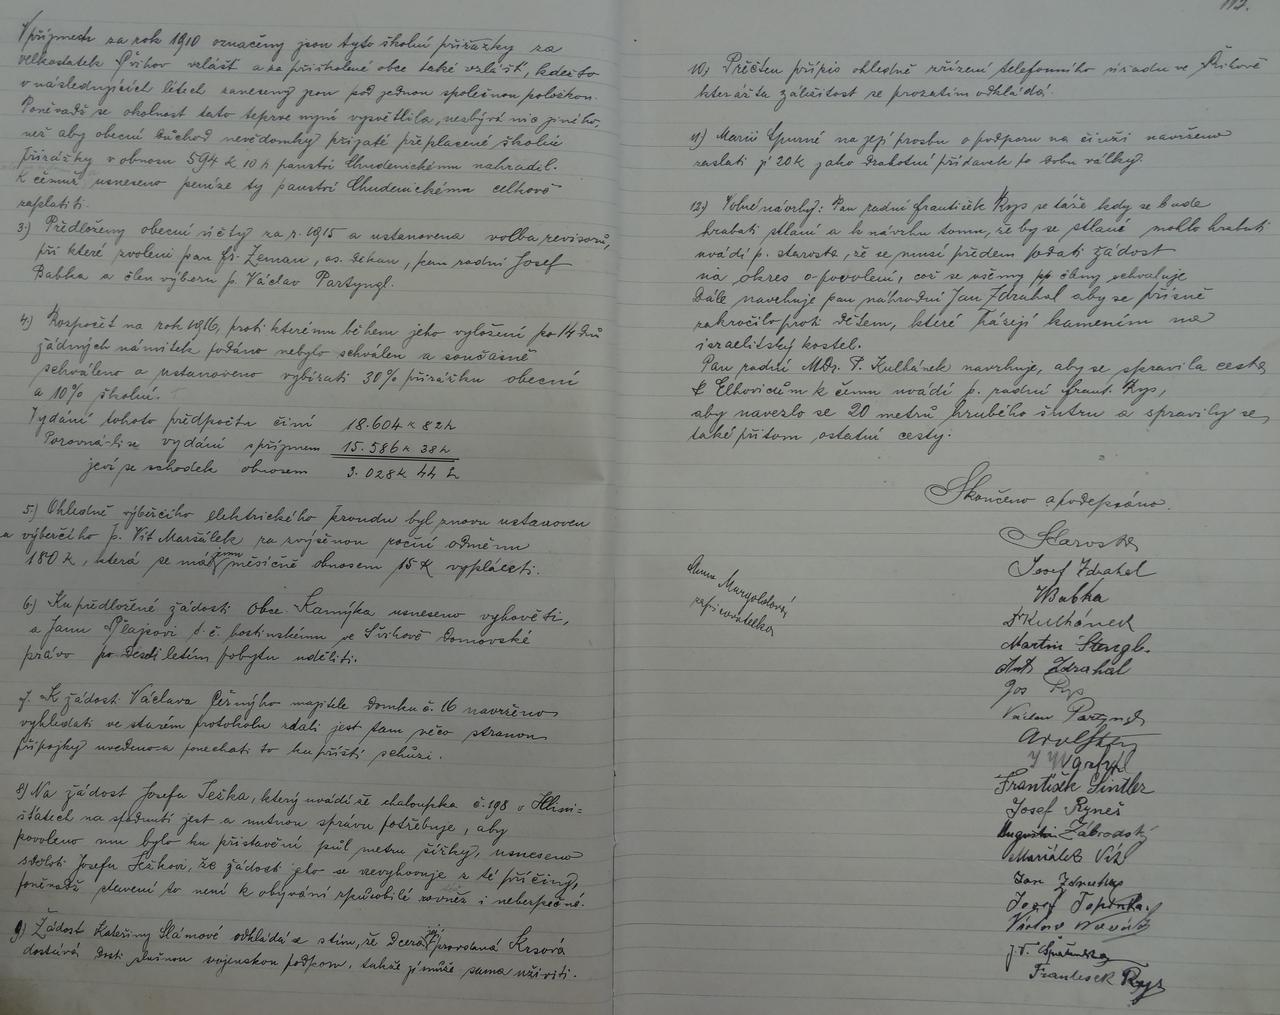 V příjmech za rok 1910 označeny jsou tyto školní přirážky za
velkostatek Švihov zvlášť a za přiškolené obce také zvlášť, kdežto
v následujících létech zaneseny jsou pod jednou společnou položkou.
Poněvadž se okolnost tato teprve nyní vysvětlila, nezbývá nic jiného,
než aby obecní důchod nevědomky přijaté přeplacené školní
přirážky v obnosu 594 K 10 h panství Chudenickému nahradil.
K čemuž usneseno peníze ty panství Chudenickému celkově
zaplatiti.
3.) Předloženy obecní účty za r. 1915 a ustanovena volba revisorů,
při které zvoleni pan Fr. Zeman, os. děkan, pan radní Josef
Babka a člen výboru p. Václav Partyngl.
4.) Rozpočet na rok 1916, proti kterému během jeho vyložení po 14 dnů
žádných námitek podáno nebylo schválen a současně
schváleno a ustanoveno vybírati 30% přirážku obecní
a 10% školní.
Vydání tohoto předpočtu činí 18.604 K 82 h
Porovná-li se vydání s příjmem 15.586 K 38 h
jeví se schodek obnosem 3.028 K 44 h
5.) Ohledně výběrčího elektrického proudu byl znovu ustanoven
a výběrčího p. Vít Maršálek za zvýšenou roční odměnu
180 K, která se má jemu měsíčně obnosem 15 K vypláceti.
6.) Ku předložené žádosti obce Kamýka usneseno vyhověti,
a Janu d. č. hostinskému ve Švihově domovské
právo po desíti letém pobytu uděliti.
7. K žádosti Václava Černýho majitele domku č. 16 navrženo
vyhledati ve starém protokolu zdali jest tam něco stranou
přípojky uvedeno a ponechati to ku příští schůzi.
8.) Na žádost Josefa Ješka, který uvádí že chaloupka č. 198 v Hlini-
šťatech na spadnutí jest a nutnou správu potřebuje, aby
povoleno mu bylo ku přistavění půl metru šířky, usneseno
sděliti Josefu Ješkovi, že žádosti jeho se nevyhovuje z té příčiny,
poněvadž stavení to není k obývání způsobilé rovněž i nebezpečné.
9.) Žádost Kateřiny Slámové odkládá se s tím, že dcera její provdaná
dostává dosti slušnou vojenskou podporu, takže ji může sama uživiti.
112.
10.) Přečten přípis ohledně zřízení telefonního úřadu ve Švihově
kterážto záležitost se prozatím odkládá.
11.) Marii Spurné na její prosbu o podporu na činži navrženo
zaslati jí 20 K jako drahotní přídavek po dobu války.
12.) Volné návrhy: Pan radní František Rys se táže kdy se bude
hrabati stlaní a k návrhu tomu, že by se stlaní mohlo hrabati
uvádí p. starosta, že se musí předem podati žádost
na okres o povolení, což se všemi členy schvaluje
Dále navrhuje pan náhradní Jan Zdrahal aby se přísně
zakročilo proti dětem, které házejí kamením na
israelitský kostel.
Pan radní MDr. P. Kulhánek navrhuje, aby se spravila cesta
k Elhovicům k čemu uvádí p. radní Frant. Rys,
aby navezlo se 20 metrů hrubého štěrku a spravily se
také přitom ostatní cesty.
Skončeno a podepsáno.
Starosta
Josef Zdrahal
Anna
zapisovatelka
Babka
Dr Kulhánek
Martin Stengl.
Ant. Zdrahal
Jos Rys
Václav Partyngl
František Sintler
Josef Ryneš
Augustin Zábrodský
Maršálek Vít
Jan
Josef Topinka
František Rys